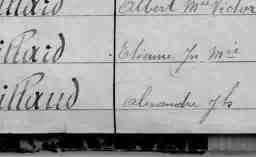 illaud Albert Mce Victor
illaud Etienne Jn Mrie
illaud Alexandre Jh